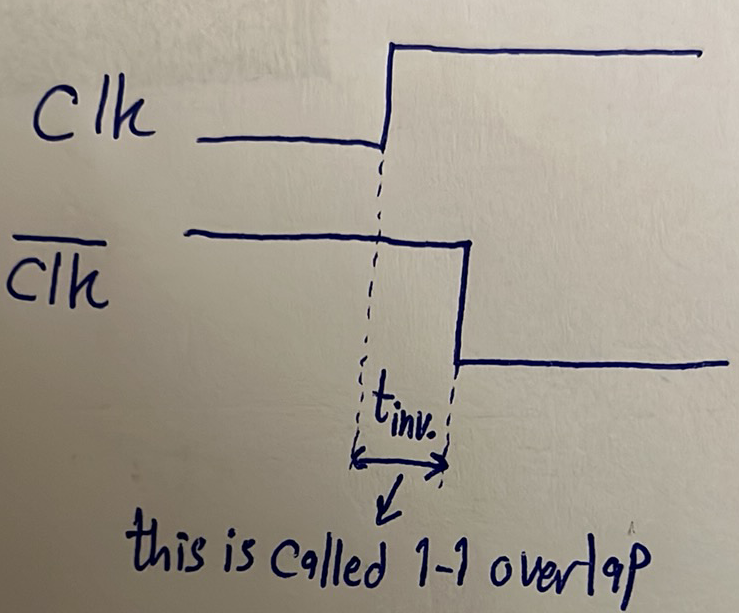 Clk
C̅l̅k̅
tinv.
this is called 1-1 overlap